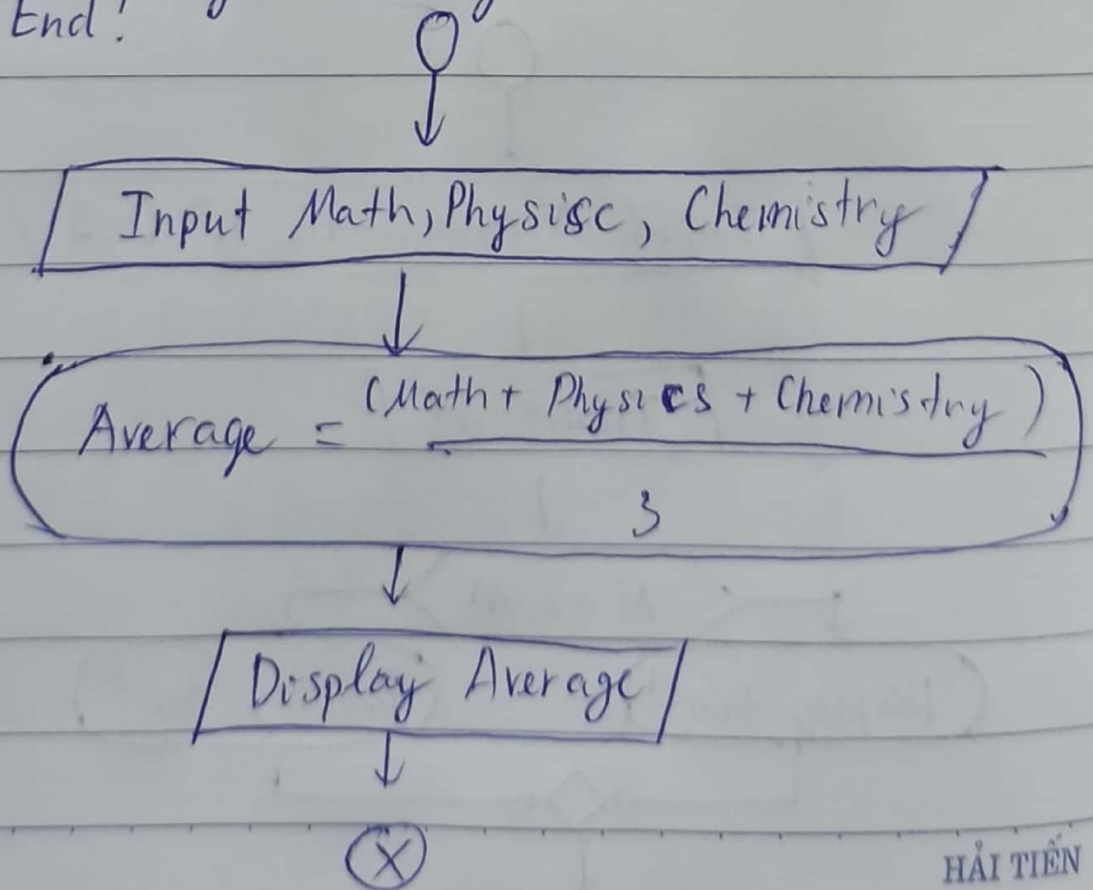 End!
Input Math, Physisc, Chemistry
(Math + Physics + Chemistry)
Average =
3
Display Average
X
HẢI TIẾN